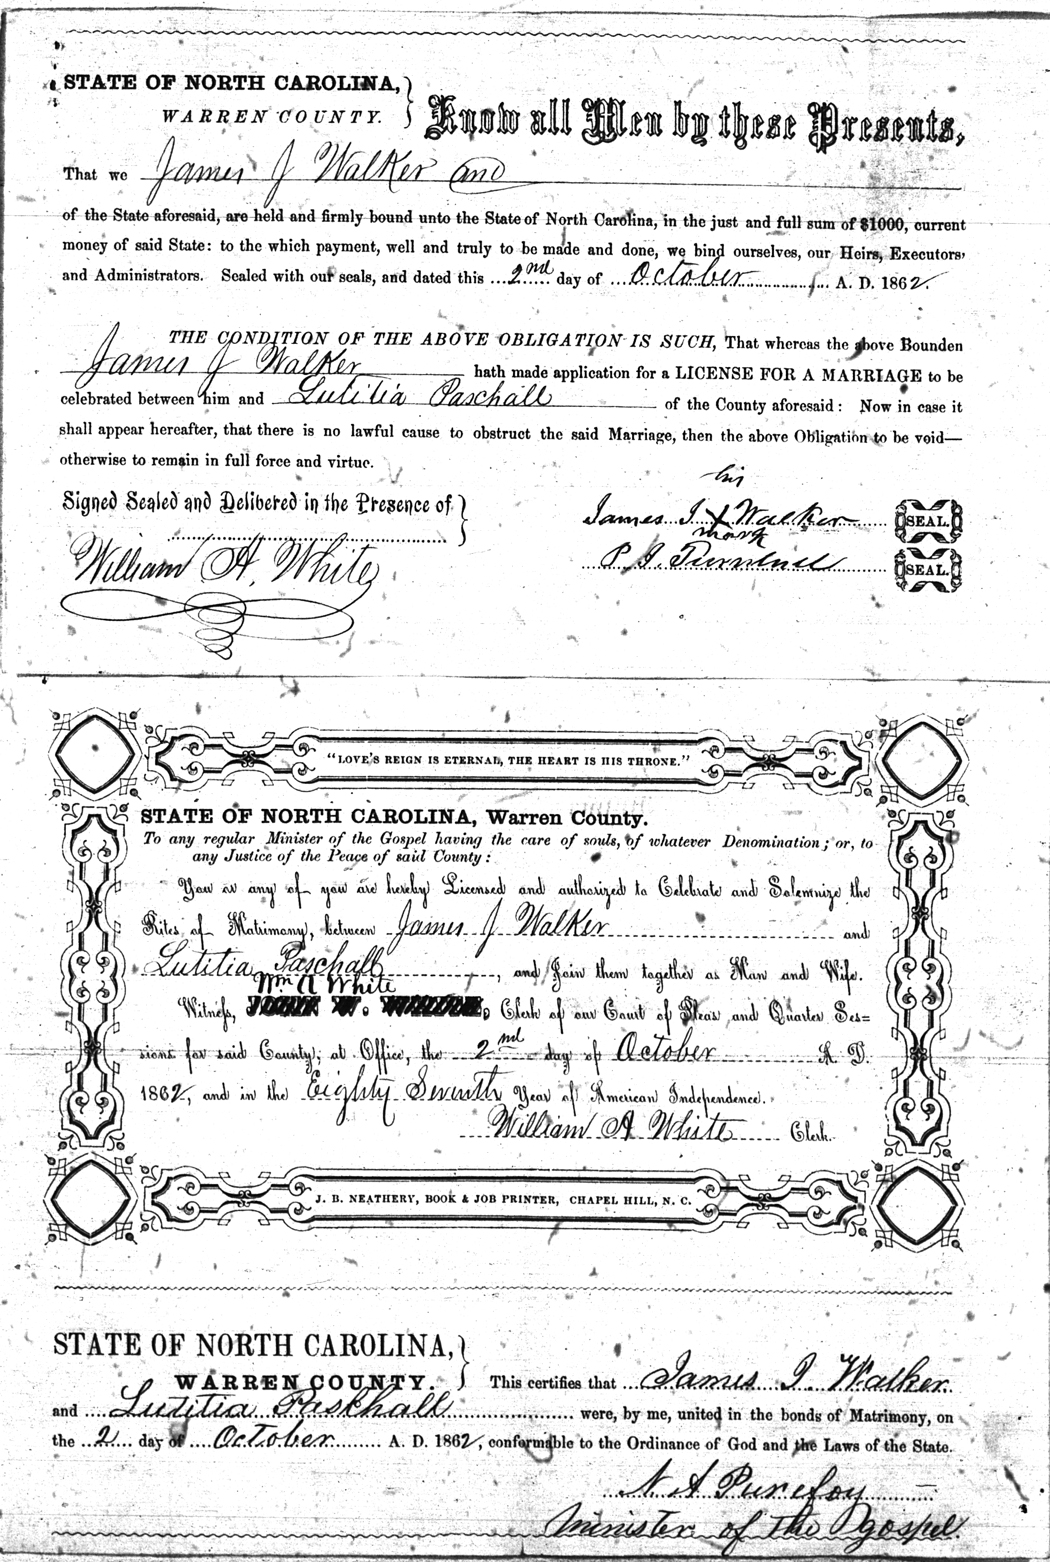 STATE OF NORTH CAROLINA,
WARREN COUNTY.
Know all Men by these Presents,
That we James J Walker and
of the State aforesaid, are held and firmly bound unto the State of North Carolina, in the just and full sum of $1000, current
money of said State: to the which payment, well and truly to be made and done, we bind ourselves, our Heirs, Executors,
and Administrators. Sealed with our seals, and dated this 2nd day of October A. D. 1862.
THE CONDITION OF THE ABOVE OBLIGATION IS SUCH, That whereas the above Bounden
James J Walker hath made application for a LICENSE FOR A MARRIAGE to be
celebrated between him and Lutitia Paschall of the County aforesaid: Now in case it
shall appear hereafter, that there is no lawful cause to obstruct the said Marriage, then the above Obligation to be void—
otherwise to remain in full force and virtue.
Signed Sealed and Delibered in the Presence of
William A. White
his
James J X Walker SEAL.
mark
P. J. Turnbull SEAL.
"LOVE'S REIGN IS ETERNAL, THE HEART IS HIS THRONE."
STATE OF NORTH CAROLINA, Warren County.
To any regular Minister of the Gospel having the care of souls, of whatever Denomination; or, to
any Justice of the Peace of said County:
You or any of you are hereby Licensed and authorized to Celebrate and Solemnize the
Rites of Matrimony, between James J Walker and
Lutitia Paschall, and Join them together as Man and Wife.
Wm A White
Witness, Clerk of our Court of Pleas and Quarter Ses=
sions for said County; at Office, the 2nd day of October A. D.
1862, and in the Eighty Seventh Year of American Independence.
William A White Clerk.
J. B. NEATHERY, BOOK & JOB PRINTER, CHAPEL HILL, N. C.
STATE OF NORTH CAROLINA,
WARREN COUNTY.
This certifies that James J. Walker
and Lutitia Paschall were, by me, united in the bonds of Matrimony, on
the 2 day of October A. D. 1862, conformable to the Ordinance of God and the Laws of the State.
N A Purefoy
Minister of the gospel.